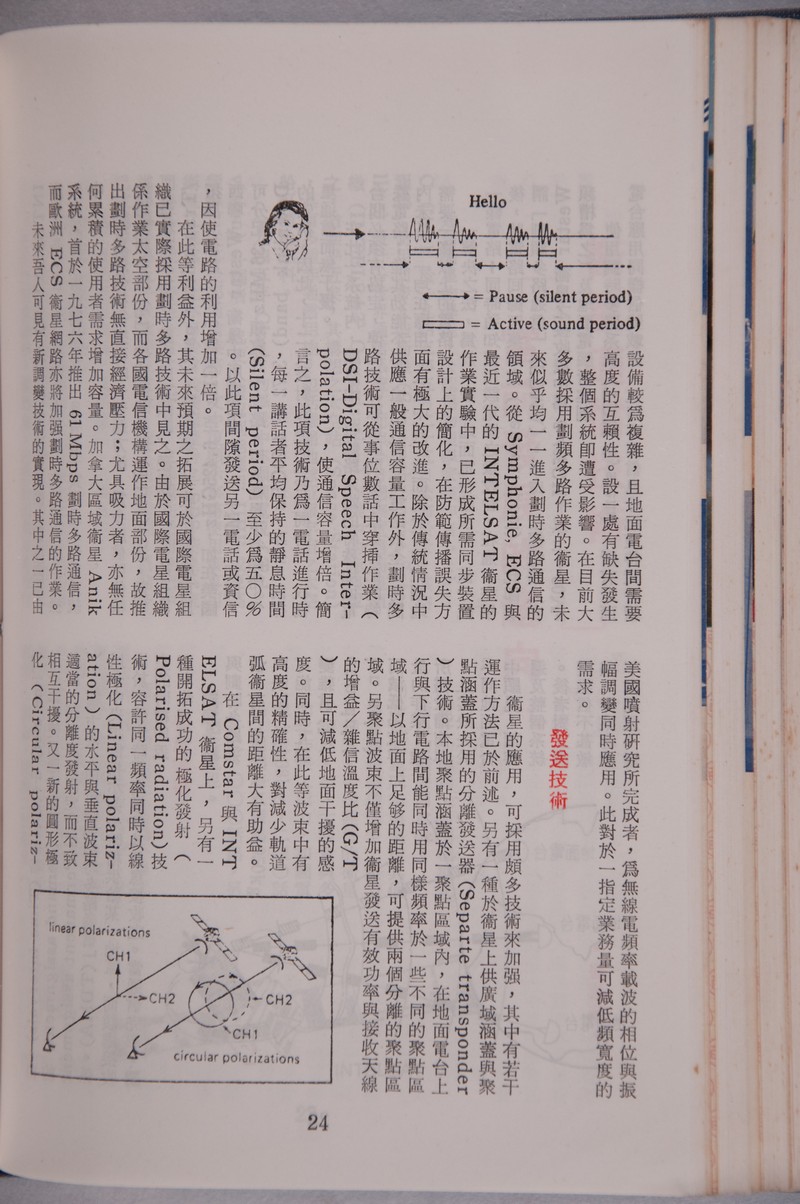 Hello
= Pause (silent period)
= Active (sound period)
設備較爲複雜，且地面電台間需要
高度的互賴性。設一處有缺失發生
，整個系統卽遭受影響。在目前大
多數採用劃頻多路作業的衞星，未
來似乎均一一進入劃時多路通信的
領域。從 Symphonie, ECS 與
最近一代的 INTELSAT 衞星的
作業實驗中，已形成所需同步裝置
設計上的簡化，在防範傳播誤失方
面有極大的改進。除於傳統情況中
供應一般通信容量工作外，劃時多
路技術可從事位數話中穿揷作業（
DSI-Digital Speech Inter-
polation)，使通信容量增倍。簡
言之，此項技術乃爲一電話進行時
，每一講話者平均保持的靜息時間
(Silent period) 至少爲五〇％
。以此項間隙發送另一電話或資信
，因使電路的利用增加一倍。
在此等利益外，其未來預期之拓展可於國際電星組
織已實際採用劃時多路技術中見之。由於國際電星組織
係作業太空部份，而各國電信機構運作地面部份，故推
出劃時多路技術無直接經濟壓力；尤具吸力者，亦無任
何累積的使用者需求增加容量。加拿大區域衞星 Anik
系統，首於一九七六年推出 61 Mbps 劃時多路通信，
而歐洲 ECS 衞星網路亦將加强劃時多路通信的作業。
未來吾人可見有新調變技術的實現。其中之一已由
美國噴射硏究所完成者，爲無線電頻率載波的相位與振
幅調變同時應用。此對於一指定業務量可減低頻寬度的
需求。
發送技術
衞星的應用，可採用頗多技術來加强，其中有若干
運作方法已於前述。另有一種於衞星上供廣域涵蓋與聚
點涵蓋所採用的分離發送器 (Separte transponder
）技術。本地聚點涵蓋於一聚點區域內，在地面電台上
行與下行電路間能同時用同樣頻率於一些不同的聚點區
域——以地面上足够的距離，可提供兩個分離的聚點區
域。另聚點波束不僅增加衞星發送有效功率與接收天線
的增益／雜信溫度比 (G/T
），且可減低地面干擾的感
度。同時，在此等波束中有
高度的精確性，對減少軌道
弧衞星間的距離大有助益。
在 Comstar 與 INT
ELSAT 衞星上，另有一
種開拓成功的極化發射（
Polarised radiation) 技
術，容許同一頻率同時以線
性極化 (Linear polariz-
ation ) 的水平與垂直波束
適當的分離度發射，而不致
相互干擾。又一新的圓形極
化 (Circular polariz-
linear polarizations
CH1
CH2
CH2
CH1
circular polarizations
24